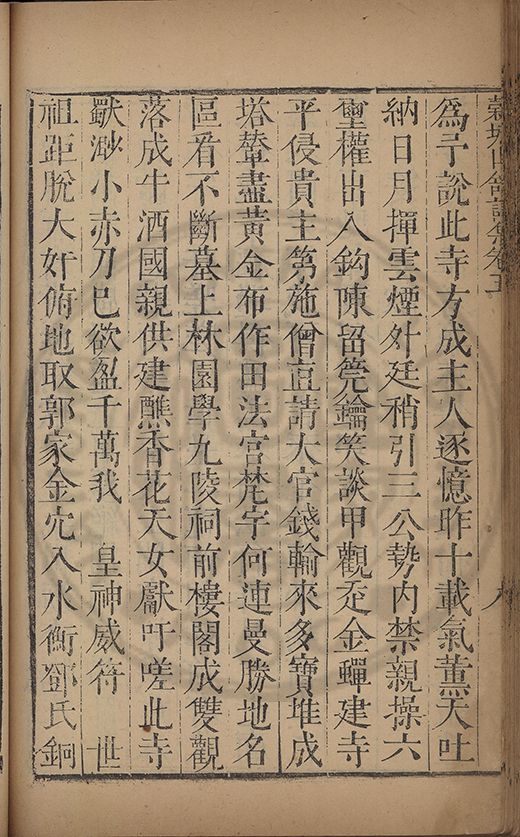 穀城山館詩集卷五
為予說此寺方成主人逐憶昨十載氣薰天吐
納日月揮雲煙外廷稍引三公勢內禁親操六
璽權出入鈎陳留筦鑰笑談甲觀歪金蟬建寺
平侵貴主第施僧直請大官錢輸來多寶堆成
塔輦盡黃金布作田法宮梵宇何連曼勝地名
區看不斷墓上林園學九陵祠前樓閣成雙觀
落成牛酒國親供建醮香花天女獻吁嗟此寺
歇渺小赤刀巳欲盈千萬我 皇神威符 世
祖距脫大奸俯地取郭家金穴入水衡鄧氏銅